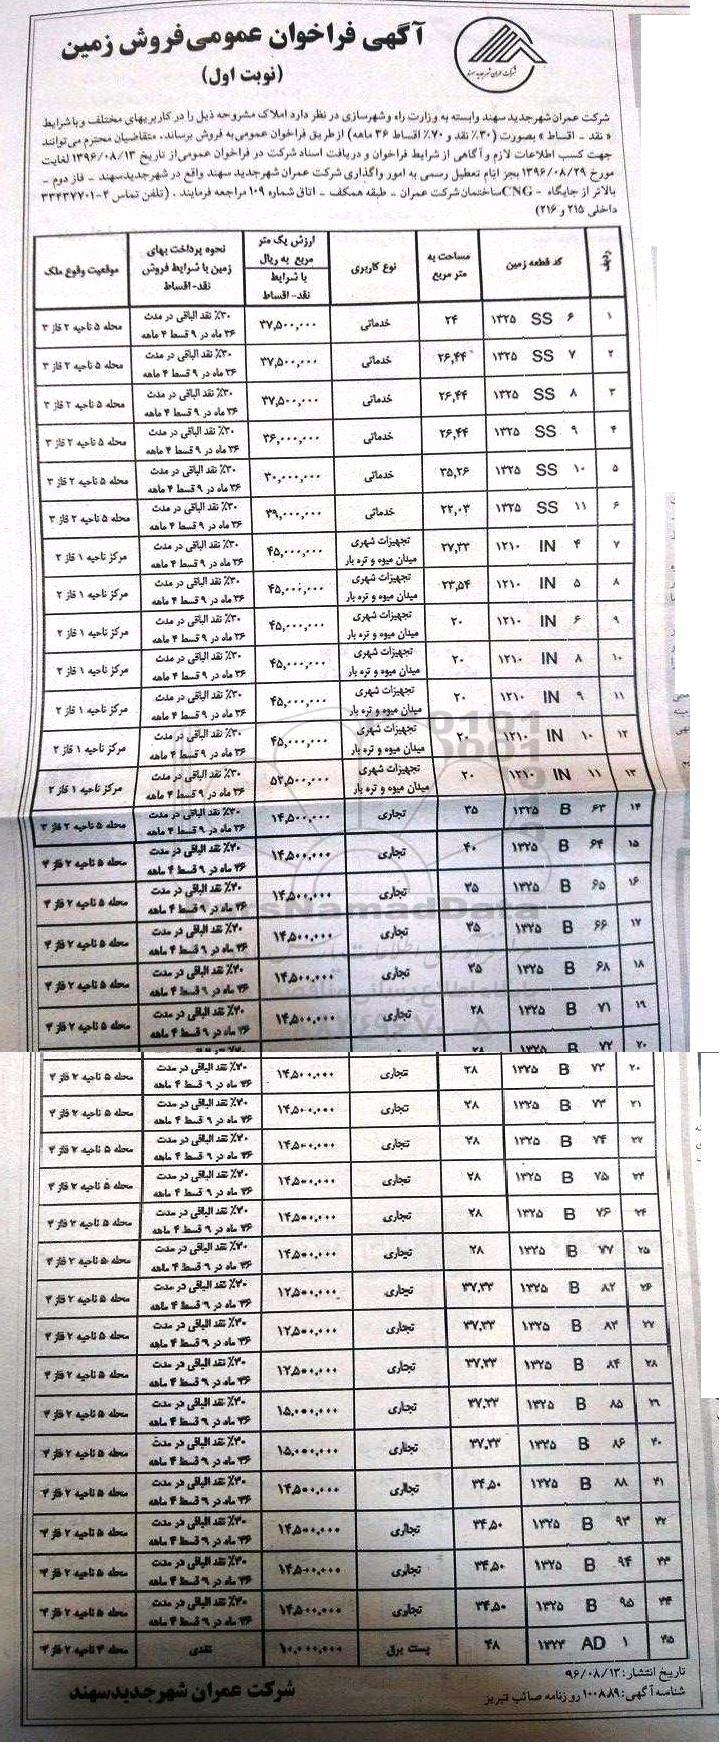 آگهی فراخوان عمومی فروش زمین
(نوبت اول)
شرکت عمران شهر جدید سهند
شرکت عمران شهرجدید سهند وابسته به وزارت راه و شهرسازی در نظر دارد املاک مشروحه ذیل را در کاربریهای مختلف و با شرایط
« نقد - اقساط » بصورت (۳۰٪ نقد و ۷۰٪ اقساط ۳۶ ماهه) از طریق فراخوان عمومی به فروش برساند. متقاضیان محترم می‌توانند
جهت کسب اطلاعات لازم و آگاهی از شرایط فراخوان و دریافت اسناد شرکت در فراخوان عمومی از تاریخ ۱۳۹۶/۰۸/۱۳ لغایت
مورخ ۱۳۹۶/۰۸/۲۹ بجز ایام تعطیل رسمی به امور واگذاری شرکت عمران شهرجدید سهند واقع در شهرجدیدسهند - فاز دوم -
بالاتر از جایگاه CNG - ساختمان شرکت عمران - طبقه همکف - اتاق شماره ۱۰۹ مراجعه فرمایند. (تلفن تماس ۴-۳۳۴۳۷۷۰۱
داخلی ۲۱۵ و ۲۱۶)
ردیف | کد قطعه زمین | مساحت به متر مربع | نوع کاربری | ارزش یک متر مربع به ریال با شرایط نقد - اقساط | نحوه پرداخت بهای زمین با شرایط فروش نقد - اقساط | موقعیت وقوع ملک
۱ | ۱۳۲۵ SS ۶ | ۲۴ | خدماتی | ۳۷,۵۰۰,۰۰۰ | ۳۰٪ نقد الباقی در مدت ۳۶ ماه در ۹ قسط ۴ ماهه | محله ۵ ناحیه ۲ فاز ۳
۲ | ۱۳۲۵ SS ۷ | ۲۶,۴۴ | خدماتی | ۳۷,۵۰۰,۰۰۰ | ۳۰٪ نقد الباقی در مدت ۳۶ ماه در ۹ قسط ۴ ماهه | محله ۵ ناحیه ۲ فاز ۳
۳ | ۱۳۲۵ SS ۸ | ۲۶,۴۴ | خدماتی | ۳۷,۵۰۰,۰۰۰ | ۳۰٪ نقد الباقی در مدت ۳۶ ماه در ۹ قسط ۴ ماهه | محله ۵ ناحیه ۲ فاز ۳
۴ | ۱۳۲۵ SS ۹ | ۲۶,۴۴ | خدماتی | ۳۶,۰۰۰,۰۰۰ | ۳۰٪ نقد الباقی در مدت ۳۶ ماه در ۹ قسط ۴ ماهه | محله ۵ ناحیه ۲ فاز ۳
۵ | ۱۳۲۵ SS ۱۰ | ۳۵,۲۶ | خدماتی | ۳۰,۰۰۰,۰۰۰ | ۳۰٪ نقد الباقی در مدت ۳۶ ماه در ۹ قسط ۴ ماهه | محله ۵ ناحیه ۲ فاز ۳
۶ | ۱۳۲۵ SS ۱۱ | ۲۲,۰۳ | خدماتی | ۳۹,۰۰۰,۰۰۰ | ۳۰٪ نقد الباقی در مدت ۳۶ ماه در ۹ قسط ۴ ماهه | محله ۵ ناحیه ۲ فاز ۳
۷ | ۱۲۱۰ IN ۴ | ۲۷,۳۳ | تجهیزات شهری میدان میوه و تره بار | ۴۵,۰۰۰,۰۰۰ | ۳۰٪ نقد الباقی در مدت ۳۶ ماه در ۹ قسط ۴ ماهه | مرکز ناحیه ۱ فاز ۲
۸ | ۱۲۱۰ IN ۵ | ۲۳,۵۴ | تجهیزات شهری میدان میوه و تره بار | ۴۵,۰۰۰,۰۰۰ | ۳۰٪ نقد الباقی در مدت ۳۶ ماه در ۹ قسط ۴ ماهه | مرکز ناحیه ۱ فاز ۲
۹ | ۱۲۱۰ IN ۶ | ۲۰ | تجهیزات شهری میدان میوه و تره بار | ۴۵,۰۰۰,۰۰۰ | ۳۰٪ نقد الباقی در مدت ۳۶ ماه در ۹ قسط ۴ ماهه | مرکز ناحیه ۱ فاز ۲
۱۰ | ۱۲۱۰ IN ۸ | ۲۰ | تجهیزات شهری میدان میوه و تره بار | ۴۵,۰۰۰,۰۰۰ | ۳۰٪ نقد الباقی در مدت ۳۶ ماه در ۹ قسط ۴ ماهه | مرکز ناحیه ۱ فاز ۲
۱۱ | ۱۲۱۰ IN ۹ | ۲۰ | تجهیزات شهری میدان میوه و تره بار | ۴۵,۰۰۰,۰۰۰ | ۳۰٪ نقد الباقی در مدت ۳۶ ماه در ۹ قسط ۴ ماهه | مرکز ناحیه ۱ فاز ۲
۱۲ | ۱۲۱۰ IN ۱۰ | ۲۰ | تجهیزات شهری میدان میوه و تره بار | ۴۵,۰۰۰,۰۰۰ | ۳۰٪ نقد الباقی در مدت ۳۶ ماه در ۹ قسط ۴ ماهه | مرکز ناحیه ۱ فاز ۲
۱۳ | ۱۲۱۰ IN ۱۱ | ۲۰ | تجهیزات شهری میدان میوه و تره بار | ۵۲,۵۰۰,۰۰۰ | ۳۰٪ نقد الباقی در مدت ۳۶ ماه در ۹ قسط ۴ ماهه | مرکز ناحیه ۱ فاز ۲
۱۴ | ۱۳۲۵ B ۶۳ | ۳۵ | تجاری | ۱۴,۵۰۰,۰۰۰ | ۳۰٪ نقد الباقی در مدت ۳۶ ماه در ۹ قسط ۴ ماهه | محله ۵ ناحیه ۲ فاز ۳
۱۵ | ۱۳۲۵ B ۶۴ | ۴۰ | تجاری | ۱۴,۵۰۰,۰۰۰ | ۳۰٪ نقد الباقی در مدت ۳۶ ماه در ۹ قسط ۴ ماهه | محله ۵ ناحیه ۲ فاز ۳
۱۶ | ۱۳۲۵ B ۶۵ | ۳۵ | تجاری | ۱۴,۵۰۰,۰۰۰ | ۳۰٪ نقد الباقی در مدت ۳۶ ماه در ۹ قسط ۴ ماهه | محله ۵ ناحیه ۲ فاز ۳
۱۷ | ۱۳۲۵ B ۶۶ | ۳۵ | تجاری | ۱۴,۵۰۰,۰۰۰ | ۳۰٪ نقد الباقی در مدت ۳۶ ماه در ۹ قسط ۴ ماهه | محله ۵ ناحیه ۲ فاز ۳
۱۸ | ۱۳۲۵ B ۶۸ | ۳۵ | تجاری | ۱۴,۵۰۰,۰۰۰ | ۳۰٪ نقد الباقی در مدت ۳۶ ماه در ۹ قسط ۴ ماهه | محله ۵ ناحیه ۲ فاز ۳
۱۹ | ۱۳۲۵ B ۷۱ | ۲۸ | تجاری | ۱۴,۵۰۰,۰۰۰ | ۳۰٪ نقد الباقی در مدت ۳۶ ماه در ۹ قسط ۴ ماهه | محله ۵ ناحیه ۲ فاز ۳
۲۰ | ۱۳۲۵ B ۷۲ | ۲۸ | تجاری | ۱۴,۵۰۰,۰۰۰ | ۳۰٪ نقد الباقی در مدت ۳۶ ماه در ۹ قسط ۴ ماهه | محله ۵ ناحیه ۲ فاز ۳
۲۱ | ۱۳۲۵ B ۷۳ | ۲۸ | تجاری | ۱۴,۵۰۰,۰۰۰ | ۳۰٪ نقد الباقی در مدت ۳۶ ماه در ۹ قسط ۴ ماهه | محله ۵ ناحیه ۲ فاز ۳
۲۲ | ۱۳۲۵ B ۷۴ | ۲۸ | تجاری | ۱۴,۵۰۰,۰۰۰ | ۳۰٪ نقد الباقی در مدت ۳۶ ماه در ۹ قسط ۴ ماهه | محله ۵ ناحیه ۲ فاز ۳
۲۳ | ۱۳۲۵ B ۷۵ | ۲۸ | تجاری | ۱۴,۵۰۰,۰۰۰ | ۳۰٪ نقد الباقی در مدت ۳۶ ماه در ۹ قسط ۴ ماهه | محله ۵ ناحیه ۲ فاز ۳
۲۴ | ۱۳۲۵ B ۷۶ | ۲۸ | تجاری | ۱۴,۵۰۰,۰۰۰ | ۳۰٪ نقد الباقی در مدت ۳۶ ماه در ۹ قسط ۴ ماهه | محله ۵ ناحیه ۲ فاز ۳
۲۵ | ۱۳۲۵ B ۷۷ | ۲۸ | تجاری | ۱۴,۵۰۰,۰۰۰ | ۳۰٪ نقد الباقی در مدت ۳۶ ماه در ۹ قسط ۴ ماهه | محله ۵ ناحیه ۲ فاز ۳
۲۶ | ۱۳۲۵ B ۸۲ | ۳۷,۳۳ | تجاری | ۱۲,۵۰۰,۰۰۰ | ۳۰٪ نقد الباقی در مدت ۳۶ ماه در ۹ قسط ۴ ماهه | محله ۵ ناحیه ۲ فاز ۳
۲۷ | ۱۳۲۵ B ۸۳ | ۳۷,۳۳ | تجاری | ۱۲,۵۰۰,۰۰۰ | ۳۰٪ نقد الباقی در مدت ۳۶ ماه در ۹ قسط ۴ ماهه | محله ۵ ناحیه ۲ فاز ۳
۲۸ | ۱۳۲۵ B ۸۴ | ۳۷,۳۳ | تجاری | ۱۲,۵۰۰,۰۰۰ | ۳۰٪ نقد الباقی در مدت ۳۶ ماه در ۹ قسط ۴ ماهه | محله ۵ ناحیه ۲ فاز ۳
۲۹ | ۱۳۲۵ B ۸۵ | ۳۷,۳۳ | تجاری | ۱۵,۰۰۰,۰۰۰ | ۳۰٪ نقد الباقی در مدت ۳۶ ماه در ۹ قسط ۴ ماهه | محله ۵ ناحیه ۲ فاز ۳
۳۰ | ۱۳۲۵ B ۸۶ | ۳۷,۳۳ | تجاری | ۱۵,۰۰۰,۰۰۰ | ۳۰٪ نقد الباقی در مدت ۳۶ ماه در ۹ قسط ۴ ماهه | محله ۵ ناحیه ۲ فاز ۳
۳۱ | ۱۳۲۵ B ۸۸ | ۳۴,۵۰ | تجاری | ۱۴,۵۰۰,۰۰۰ | ۳۰٪ نقد الباقی در مدت ۳۶ ماه در ۹ قسط ۴ ماهه | محله ۵ ناحیه ۲ فاز ۳
۳۲ | ۱۳۲۵ B ۹۳ | ۳۴,۵۰ | تجاری | ۱۴,۵۰۰,۰۰۰ | ۳۰٪ نقد الباقی در مدت ۳۶ ماه در ۹ قسط ۴ ماهه | محله ۵ ناحیه ۲ فاز ۳
۳۳ | ۱۳۲۵ B ۹۴ | ۳۴,۵۰ | تجاری | ۱۴,۵۰۰,۰۰۰ | ۳۰٪ نقد الباقی در مدت ۳۶ ماه در ۹ قسط ۴ ماهه | محله ۵ ناحیه ۲ فاز ۳
۳۴ | ۱۳۲۵ B ۹۵ | ۳۴,۵۰ | تجاری | ۱۴,۵۰۰,۰۰۰ | ۳۰٪ نقد الباقی در مدت ۳۶ ماه در ۹ قسط ۴ ماهه | محله ۵ ناحیه ۲ فاز ۳
۳۵ | ۱۳۲۳ AD ۱ | ۴۸ | پست برق | ۱۰,۰۰۰,۰۰۰ | نقدی | محله ۳ ناحیه ۲ فاز ۳
تاریخ انتشار: ۹۶/۰۸/۱۳
شناسه آگهی: ۱۰۰۸۸۹ روزنامه صائب تبریز
شرکت عمران شهر جدید سهند